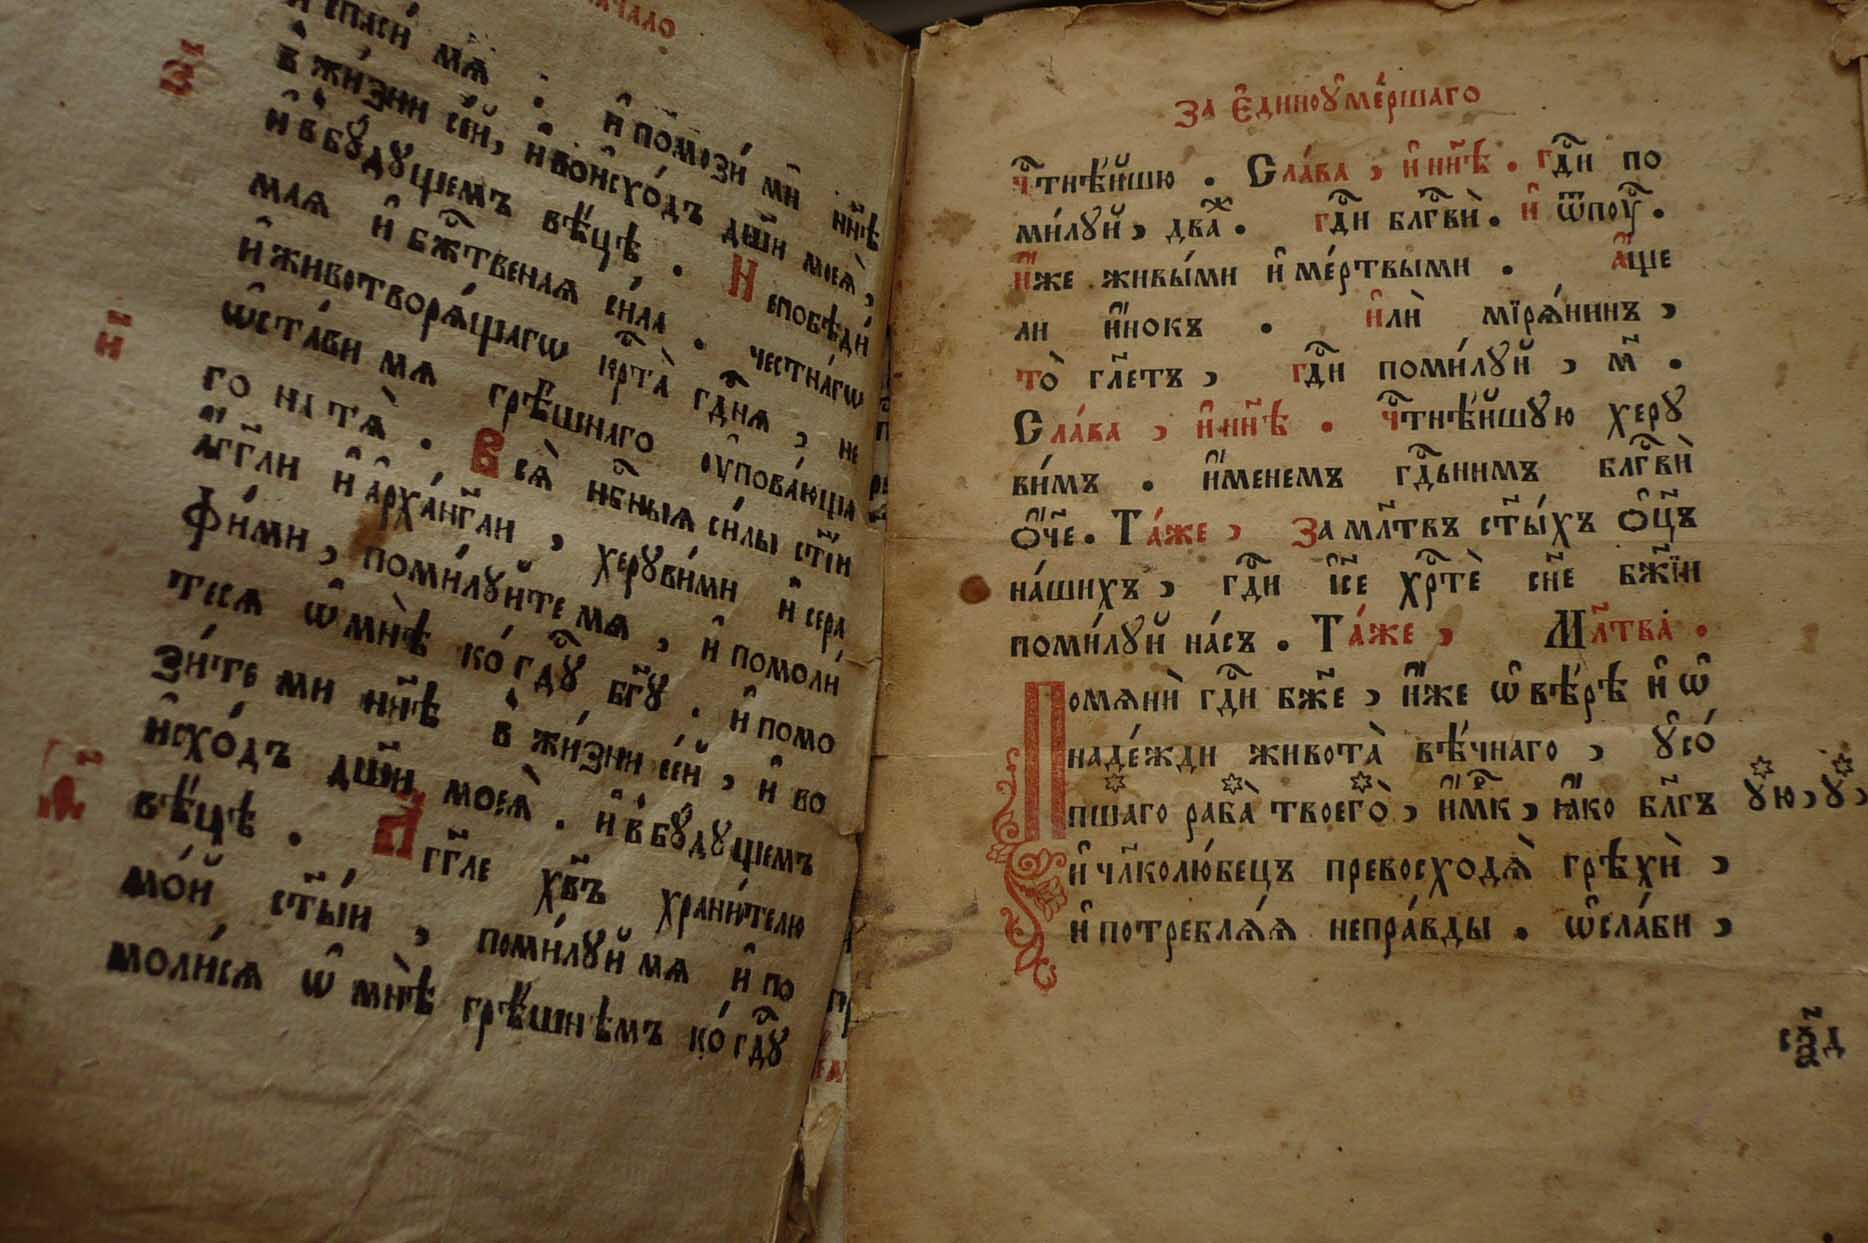 начало
и҆ спаси́ мѧ . и҆ помози́ ми̑ нн҃ѣ
в̾ жи́зни се́й, и҆ во и҆схо́дъ дш҃и моеѧ̀,
и҆ в бꙋ́дꙋщемъ вѣ́цѣ . Непобѣди́
маѧ и҆ бж҃твенаѧ си́ла . честна́гѡ
и҆ животворѧ́щагѡ крⷭ҇та̀ гдⷭ҇нѧ, не
ѡ҆ста́ви мѧ грѣ́шнаго оу҆пова́юща
го на тѧ̀ . Всѧ̀ нбⷭ҇ныѧ си́лы ст҃і́и
а҆́гг҃ли и҆ а҆рха́нг҃ли , херꙋви́ми и҆ сера
фи́ми, поми́лꙋйте мѧ , и҆ помоли́
тесѧ ѡ҆ мнѣ̀ ко́ гдⷭ҇ꙋ бг҃ꙋ . и҆ помо
зи́те ми нн҃ѣ в̾ жи́зни се́й , и҆ во
и҆схо́дъ дш҃и моеѧ̀ . и҆ в̾ бꙋ́дꙋщемъ
вѣ́цѣ . А҆́гг҃ле хв҃ъ храни́телю
мо́й ст҃ы́и , поми́лꙋй мѧ и҆ по
моли́сѧ ѡ҆ мнѣ̀ грѣ́шнѣмъ ко́ гдⷭ҇ꙋ
за є҆диноꙋме́ршаго
чⷭ҇тнѣ́йшю . Сла́ва , и҆ нн҃ѣ . гдⷭ҇и по
ми́лꙋй , два́ж . гдⷭ҇и блгⷭ҇вѝ . и҆ ѿпоꙋⷭ҇ .
И҆́же живы́ми и҆ ме́ртвыми . а҆́ще
ли и҆́нокъ . и҆лѝ мїрѧ́нинъ ,
то̀ гл҃етъ , гдⷭ҇и поми́лꙋй , м҃ .
Сла́ва , и҆ нн҃ѣ . чⷭ҇тнѣ́йшꙋю херꙋ
ви́мъ . и҆́менемъ гдⷭ҇ьнимъ блгⷭ҇вѝ
ѻ҆́ч҃е . Та́же , За мл҃твъ ст҃ы́хъ ѻ҆ц҃ъ
на́шихъ , гдⷭ҇и і҆с҃е хрⷭ҇тѐ сн҃е бж҃їи
поми́лꙋй на́съ . Та́же , Мл҃тва̀ .
Помѧнѝ гдⷭ҇и бж҃е , и҆́же ѡ҆ вѣ́рѣ и҆ ѡ҆
наде́жди живота̀ вѣ́чнаго , ᲂу҆со́
пшаго раба̀ твоего̀ , и҆́мⷬ҇к , ꙗ҆́ко бл҃гъ ꙋю, ꙋ,
и҆ чл҃колю́бецъ превосходѧ̀ грѣхѝ ,
и҆ потреблѧ́ѧ непра́вды . ѡ҆сла́би ,